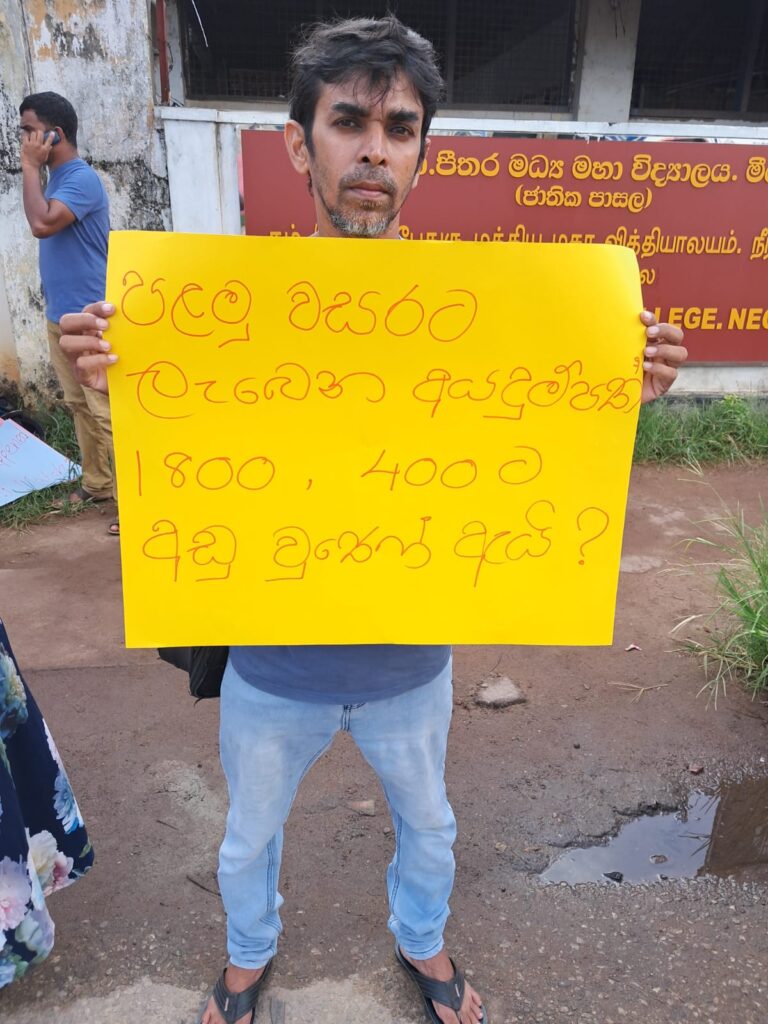 ව.පීතර මධ්‍ය මහා විද්‍යාලය. මී
(ජාතික පාසල)
மத்திய மகா வித்தியாலயம். நீ
LEGE. NEG
පළමු වසරට
ලැබෙන අයදුම්පත්
1800, 400 ට
අඩු වුනේ ඇයි?